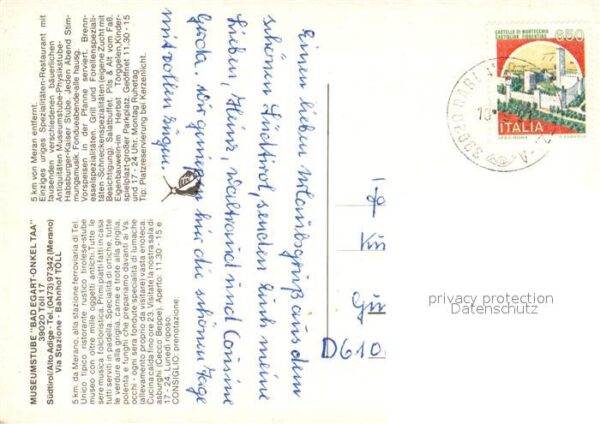 MUSEUMSTUBE "BAD EGART-ONKEL TAA"
39020 Töll 17
Südtirol/Alto Adige - Tel. (0473) 97342 (Merano)
Via Stazione - Bahnhof TÖLL
5 km. da Merano, alla stazione ferroviaria di Tel.
Unico tipico ristorante rustico tirolese-stube
museo con oltre mille oggetti antichi. Tutte le
sere musica folcloristica. Primi piatti fatti in casa
tutti serviti in padella. Specialità di ortiche, tutte
le verdure alla griglia, carne e trote alla griglia,
polenta e funghi che prepariamo davanti ai Vs.
occhi - ogni sera fondute specialità di lumache
(allevamento proprio da visitare) vasta enoteca.
Cucina calda fino ore 23. Visitate la nostra sala di
asburghi (Cecco Beppe). Aperto: 11.30 - 15 e
17 - 24. Lunedì riposo.
CONSIGLIO: prenotazione.
5 km von Meran entfernt.
Einziges uriges Spezialitäten-Restaurant mit
tausenden verschiedenen bäuerlichen
Antiquitäten Museumstube-Physikstube-
Habsburger-Kaiser Stube. Jeden Abend Stim-
mungsmusik. Fondueabende-alle hausg.
Vorspeisen in der Pfanne serviert. Brenn-
esselspezialitäten. Grill und Forellenspeziali-
täten-Schneckenspezialitäten (eigene Zucht mit
Besichtigung). Salatbuffet. Pils & Alt vom Faß.
Eigenbauwein-im Herbst Törggelen, Kinder-
spielplazt-großer Parkplatz. Geöffnet 11.30 - 15
und 17 - 24 Uhr. Montag Ruhetag
Tip: Platzreservierung bei Kerzenlicht.
Einen lieben Urlaubsgruß aus dem
schönen Südtirol, senden Euch meine
Lieben, Heinz Waltraud und Corinne
Gerda. Wir genießen hier die schönen Tage
mit vollen Zügen.
D610
650
CASTELLO DI MONTECCHIO
CASTIGLION FIORENTINO
ITALIA
39020
privacy protection
Datenschutz